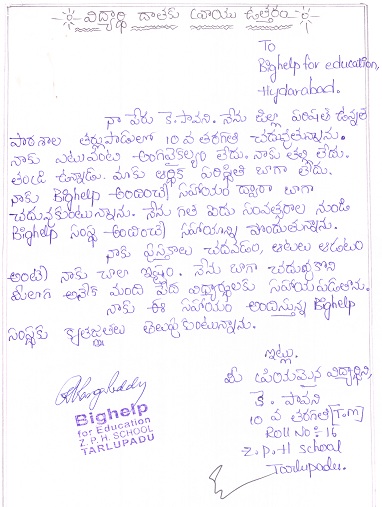 విద్యార్థి దాతకు వ్రాయు ఉత్తరం
To
Bighelp for education,
Hyderabad.
నా పేరు కె. పావని. నేను జిల్లా పరిషత్ ఉన్నత
పాఠశాల తర్లుపాడులో 10 వ తరగతి చదువుతున్నాను.
నాకు ఎటువంటి అంగవైకల్యం లేదు. నాకు తల్లి లేదు.
తండ్రి ఉన్నాడు. మాకు ఆర్థిక పరిస్థితి బాగా లేదు.
నాకు Bighelp అందించే సహాయం ద్వారా బాగా
చదువుకుంటున్నాను. నేను గత ఐదు సంవత్సరాల నుండి
Bighelp సంస్థ అందించే సహాయాన్ని పొందుతున్నాను.
నాకు పుస్తకాలు చదవడం, ఆటలు ఆడటం
అంటే నాకు చాలా ఇష్టం. నేను బాగా చదువుకొని
మీలాగ అనేక మంది పేద విద్యార్థులకు సహాయపడతాను.
నాకు ఈ సహాయం అందిస్తున్న Bighelp
సంస్థకు కృతజ్ఞతలు తెలుపుకుంటున్నాను.
ఇట్లు
మీ ప్రియమైన విద్యార్థిని,
కె. పావని
10 వ తరగతి [T.M]
Roll No :- 16
Z.P.H School
Tarlupadu.
Bighelp
for Education
Z. P. H. SCHOOL
TARLUPADU